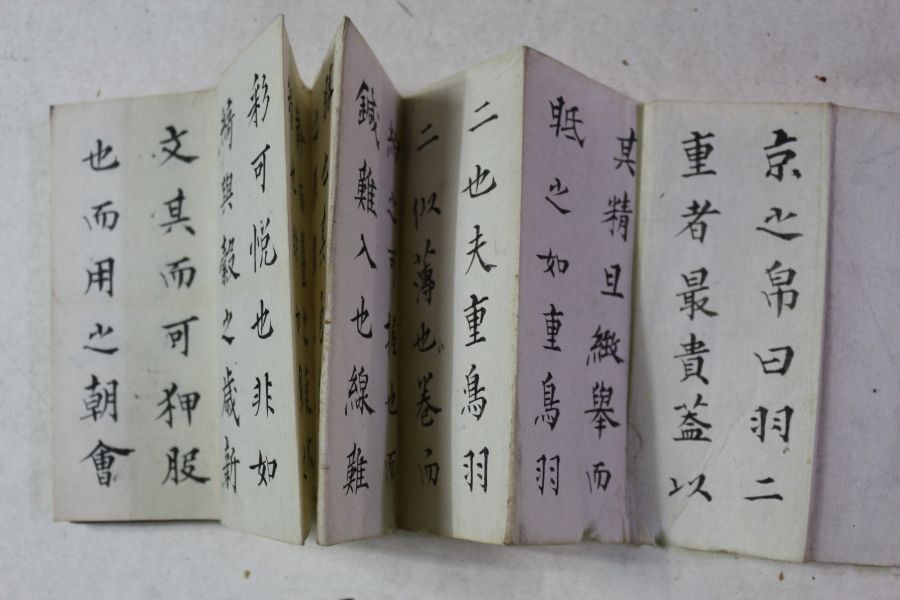 京之帛曰羽二
重者最貴蓋以
其精且緻舉而
眡之如重鳥羽
二也夫重鳥羽
二似薄也卷而
之可握也而
鍼難入也線難
彩可悦也非如
綺與縠之歳新
文其而可狎股
也而用之朝會